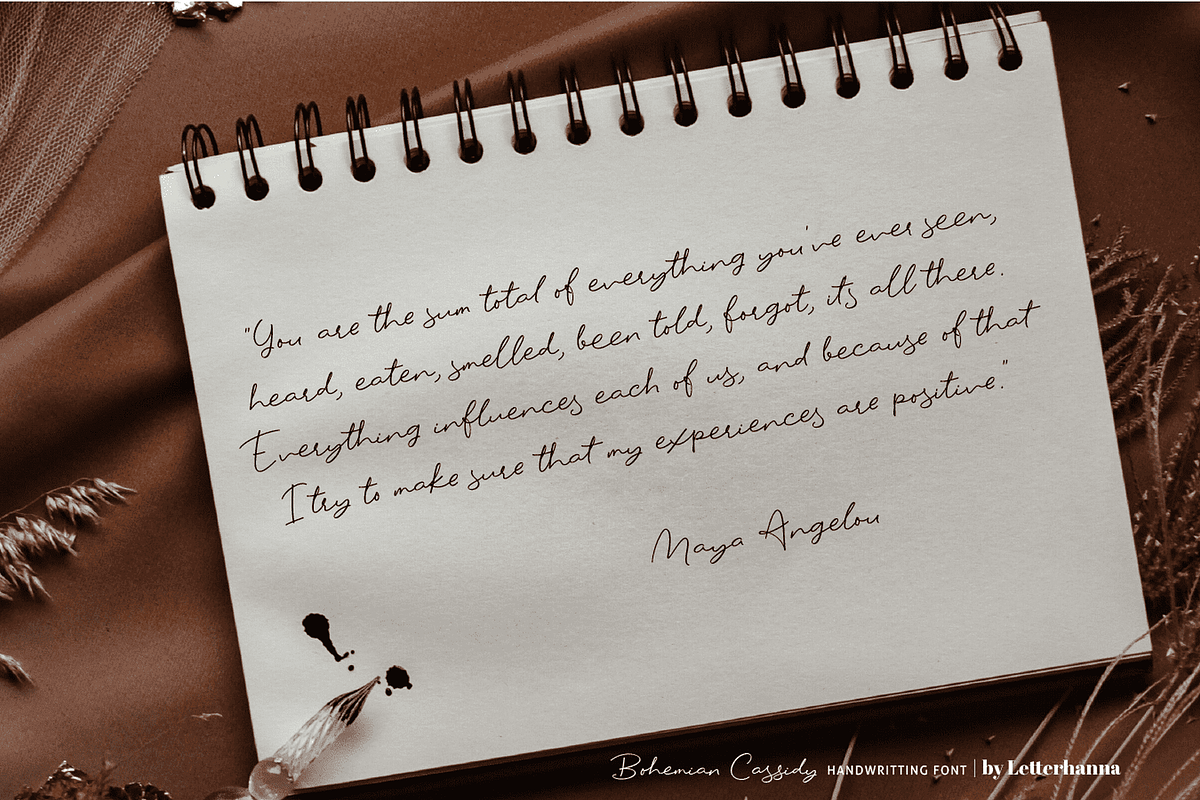 "You are the sum total of everything you've ever seen,
heard, eaten, smelled, been told, forgot, its all there.
Everything influences each of us, and because of that
I try to make sure that my experiences are positive."
Maya Angelou
Bohemian Cassidy HANDWRITTING FONT | by Letterhanna